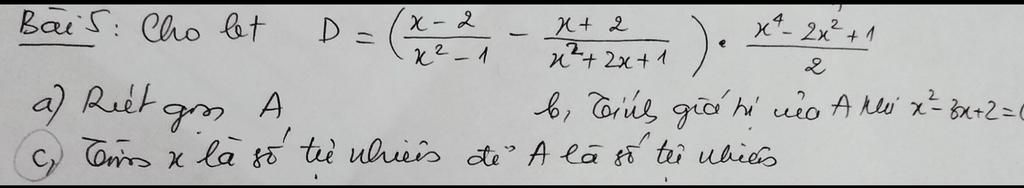 Bài 5: Cho bt D = (x-2/x²-1 - x+2/x²+2x+1) . x⁴-2x²+1/2
a) Rút gọn A b, Tính giá trị của A khi x²-3x+2=0
c, Tìm x là số tự nhiên để A là số tự nhiên